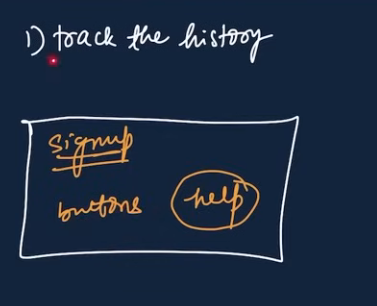 1) track the history
signup
buttons help